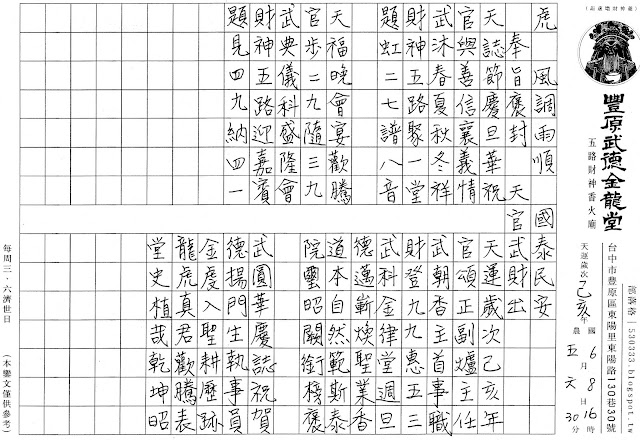 虎　風調雨順　國泰民安
奉旨褒封　天官武財出
天誌節慶旦華祝
官與善信襄義情
武沐春夏秋冬祥
財神五路聚一堂
題虹二七譜八音
天福晚會宴歡騰
官步二九隨三九
武典儀科盛隆會
財神五路迎嘉賓
題見四九納四一
天運歲次己亥年
官頌正副爐主任
武朝香主首事職
財登九九惠五三
武科金律堂週旦
德邁嶄煥聖業香
道本自然範斯泰
院璽昭闕銜榜褒
武圓華慶誌祝賀
德揚門生執事員
金慶入聖耕歷跡
龍虎真君歡騰表
堂史植哉乾坤昭
豐原武德金龍堂
五路財神香火廟
部落格｜530333.blogspot.tw
台中市豐原區東陽里東陽路130巷30號
天運歲次己亥年
國6月8日16時
農五月六日30分
每周三．六濟世日
（本鸞文僅供參考）